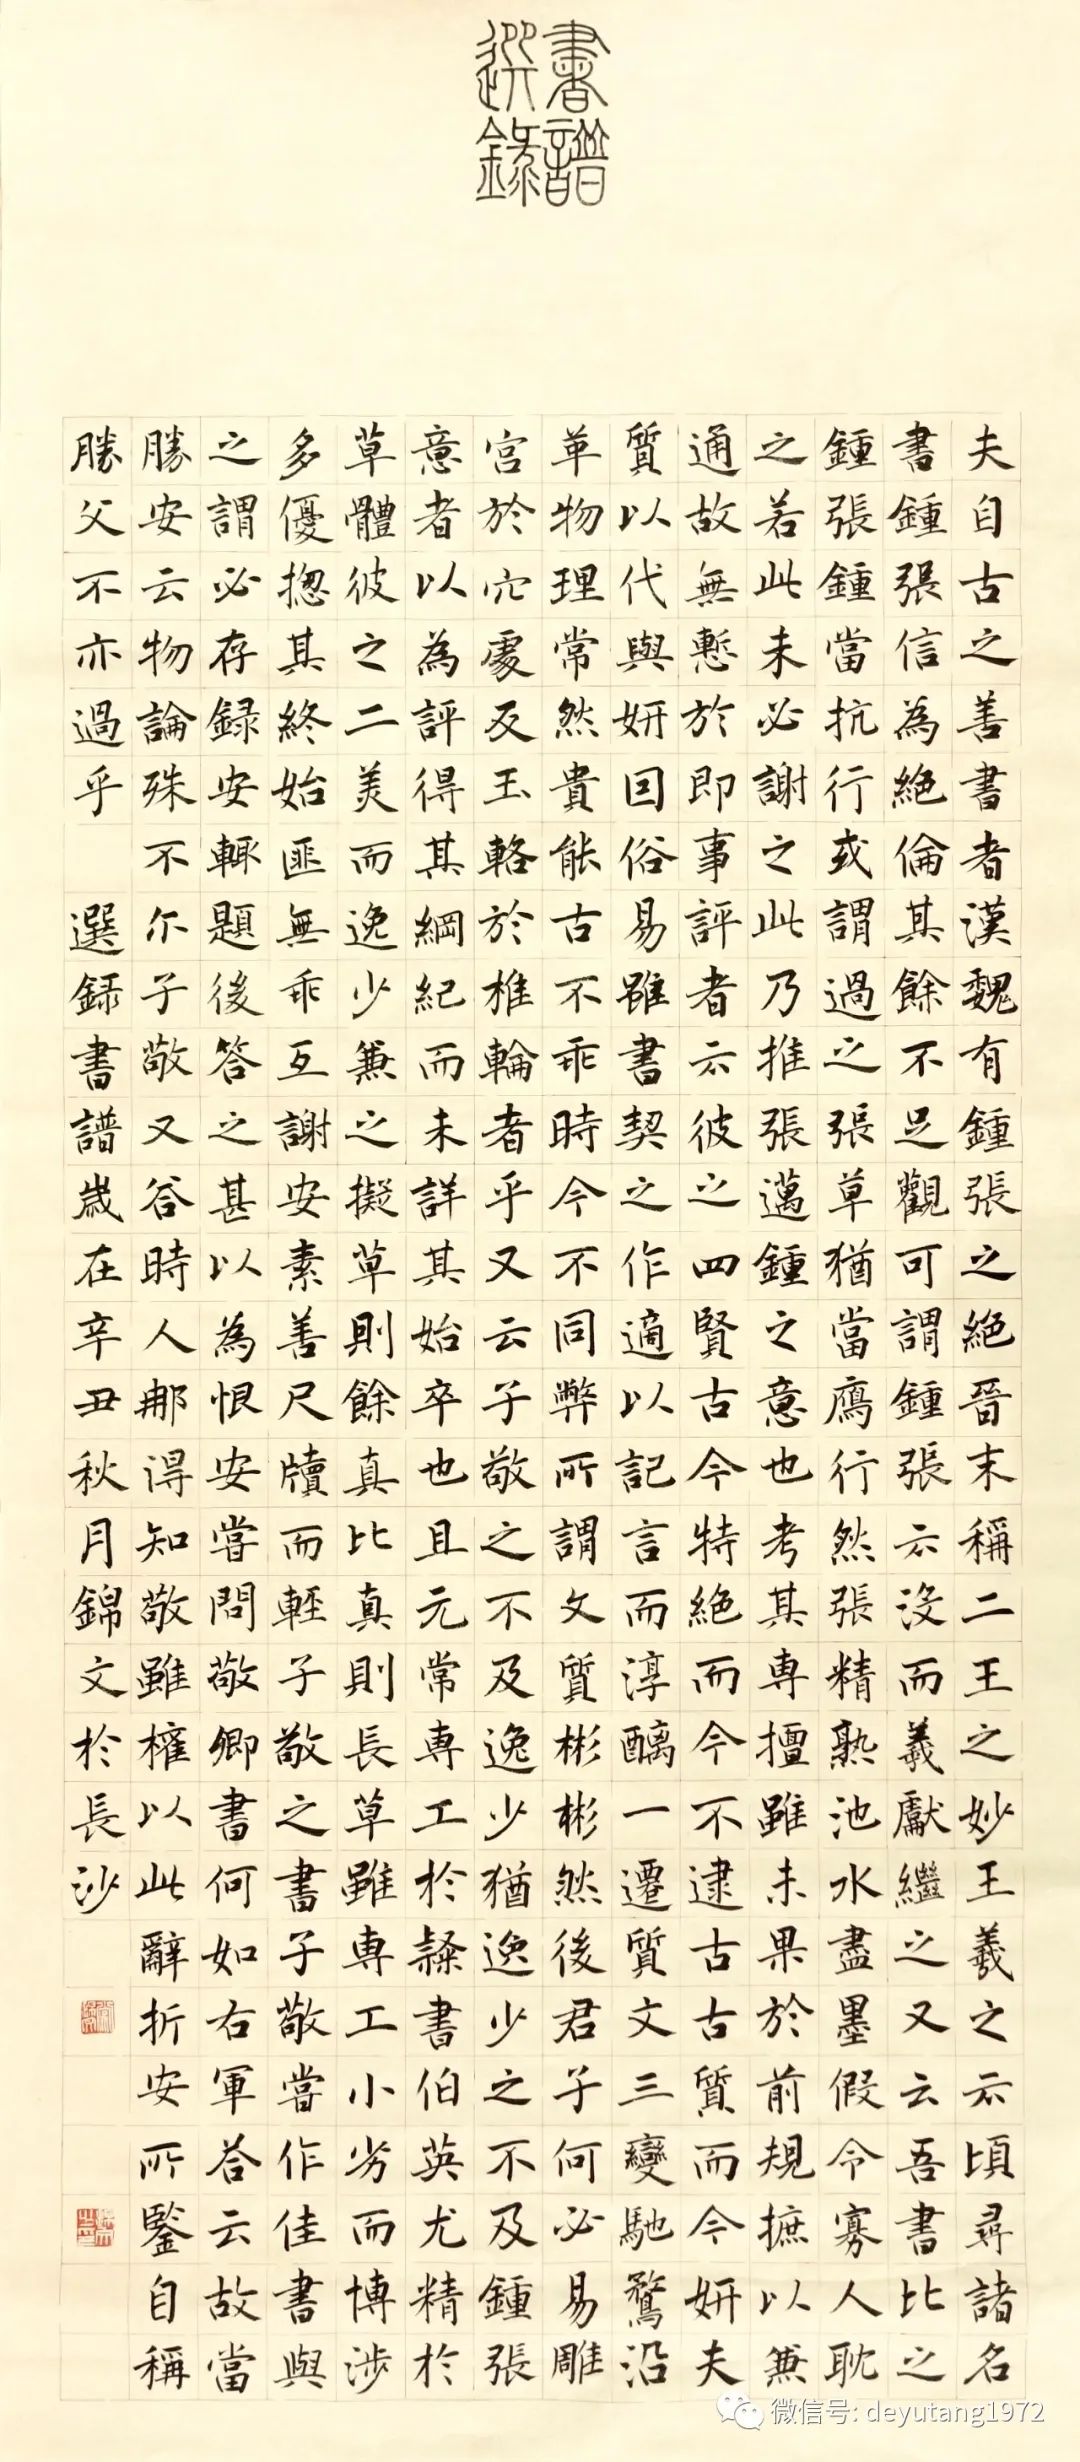 書譜
選錄
夫自古之善書者漢魏有鍾張之絕晉末稱二王之妙王羲之云頃尋諸名
書鍾張信為絕倫其餘不足觀可謂鍾張云沒而羲獻繼之又云吾書比之
鍾張鍾當抗行或謂過之張草猶當鴈行然張精熟池水盡墨假令寡人耽
之若此未必謝之此乃推張邁鍾之意也考其專擅雖未果於前規摭以兼
通故無慙於即事評者云彼之四賢古今特絕而今不逮古古質而今妍夫
質以代與妍因俗易雖書契之作適以記言而淳醨一遷質文三變馳騖沿
革物理常然貴能古不乖時今不同弊所謂文質彬彬然後君子何必易雕
宮於穴處反玉輅於椎輪者乎又云子敬之不及逸少猶逸少之不及鍾張
意者以為評得其綱紀而未詳其始卒也且元常專工於隸書伯英尤精於
草體彼之二美而逸少兼之擬草則餘真比真則長草雖專工小劣而博涉
多優摠其終始匪無乖互謝安素善尺牘而輕子敬之書子敬嘗作佳書與
之謂必存録安輒題後答之甚以為恨安嘗問敬卿書何如右軍答云故當
勝安云物論殊不尔子敬又答時人那得知敬雖權以此辭折安所鑒自稱
勝父不亦過乎 選録書譜歲在辛丑秋月錦文於長沙
微信号: deyutang1972